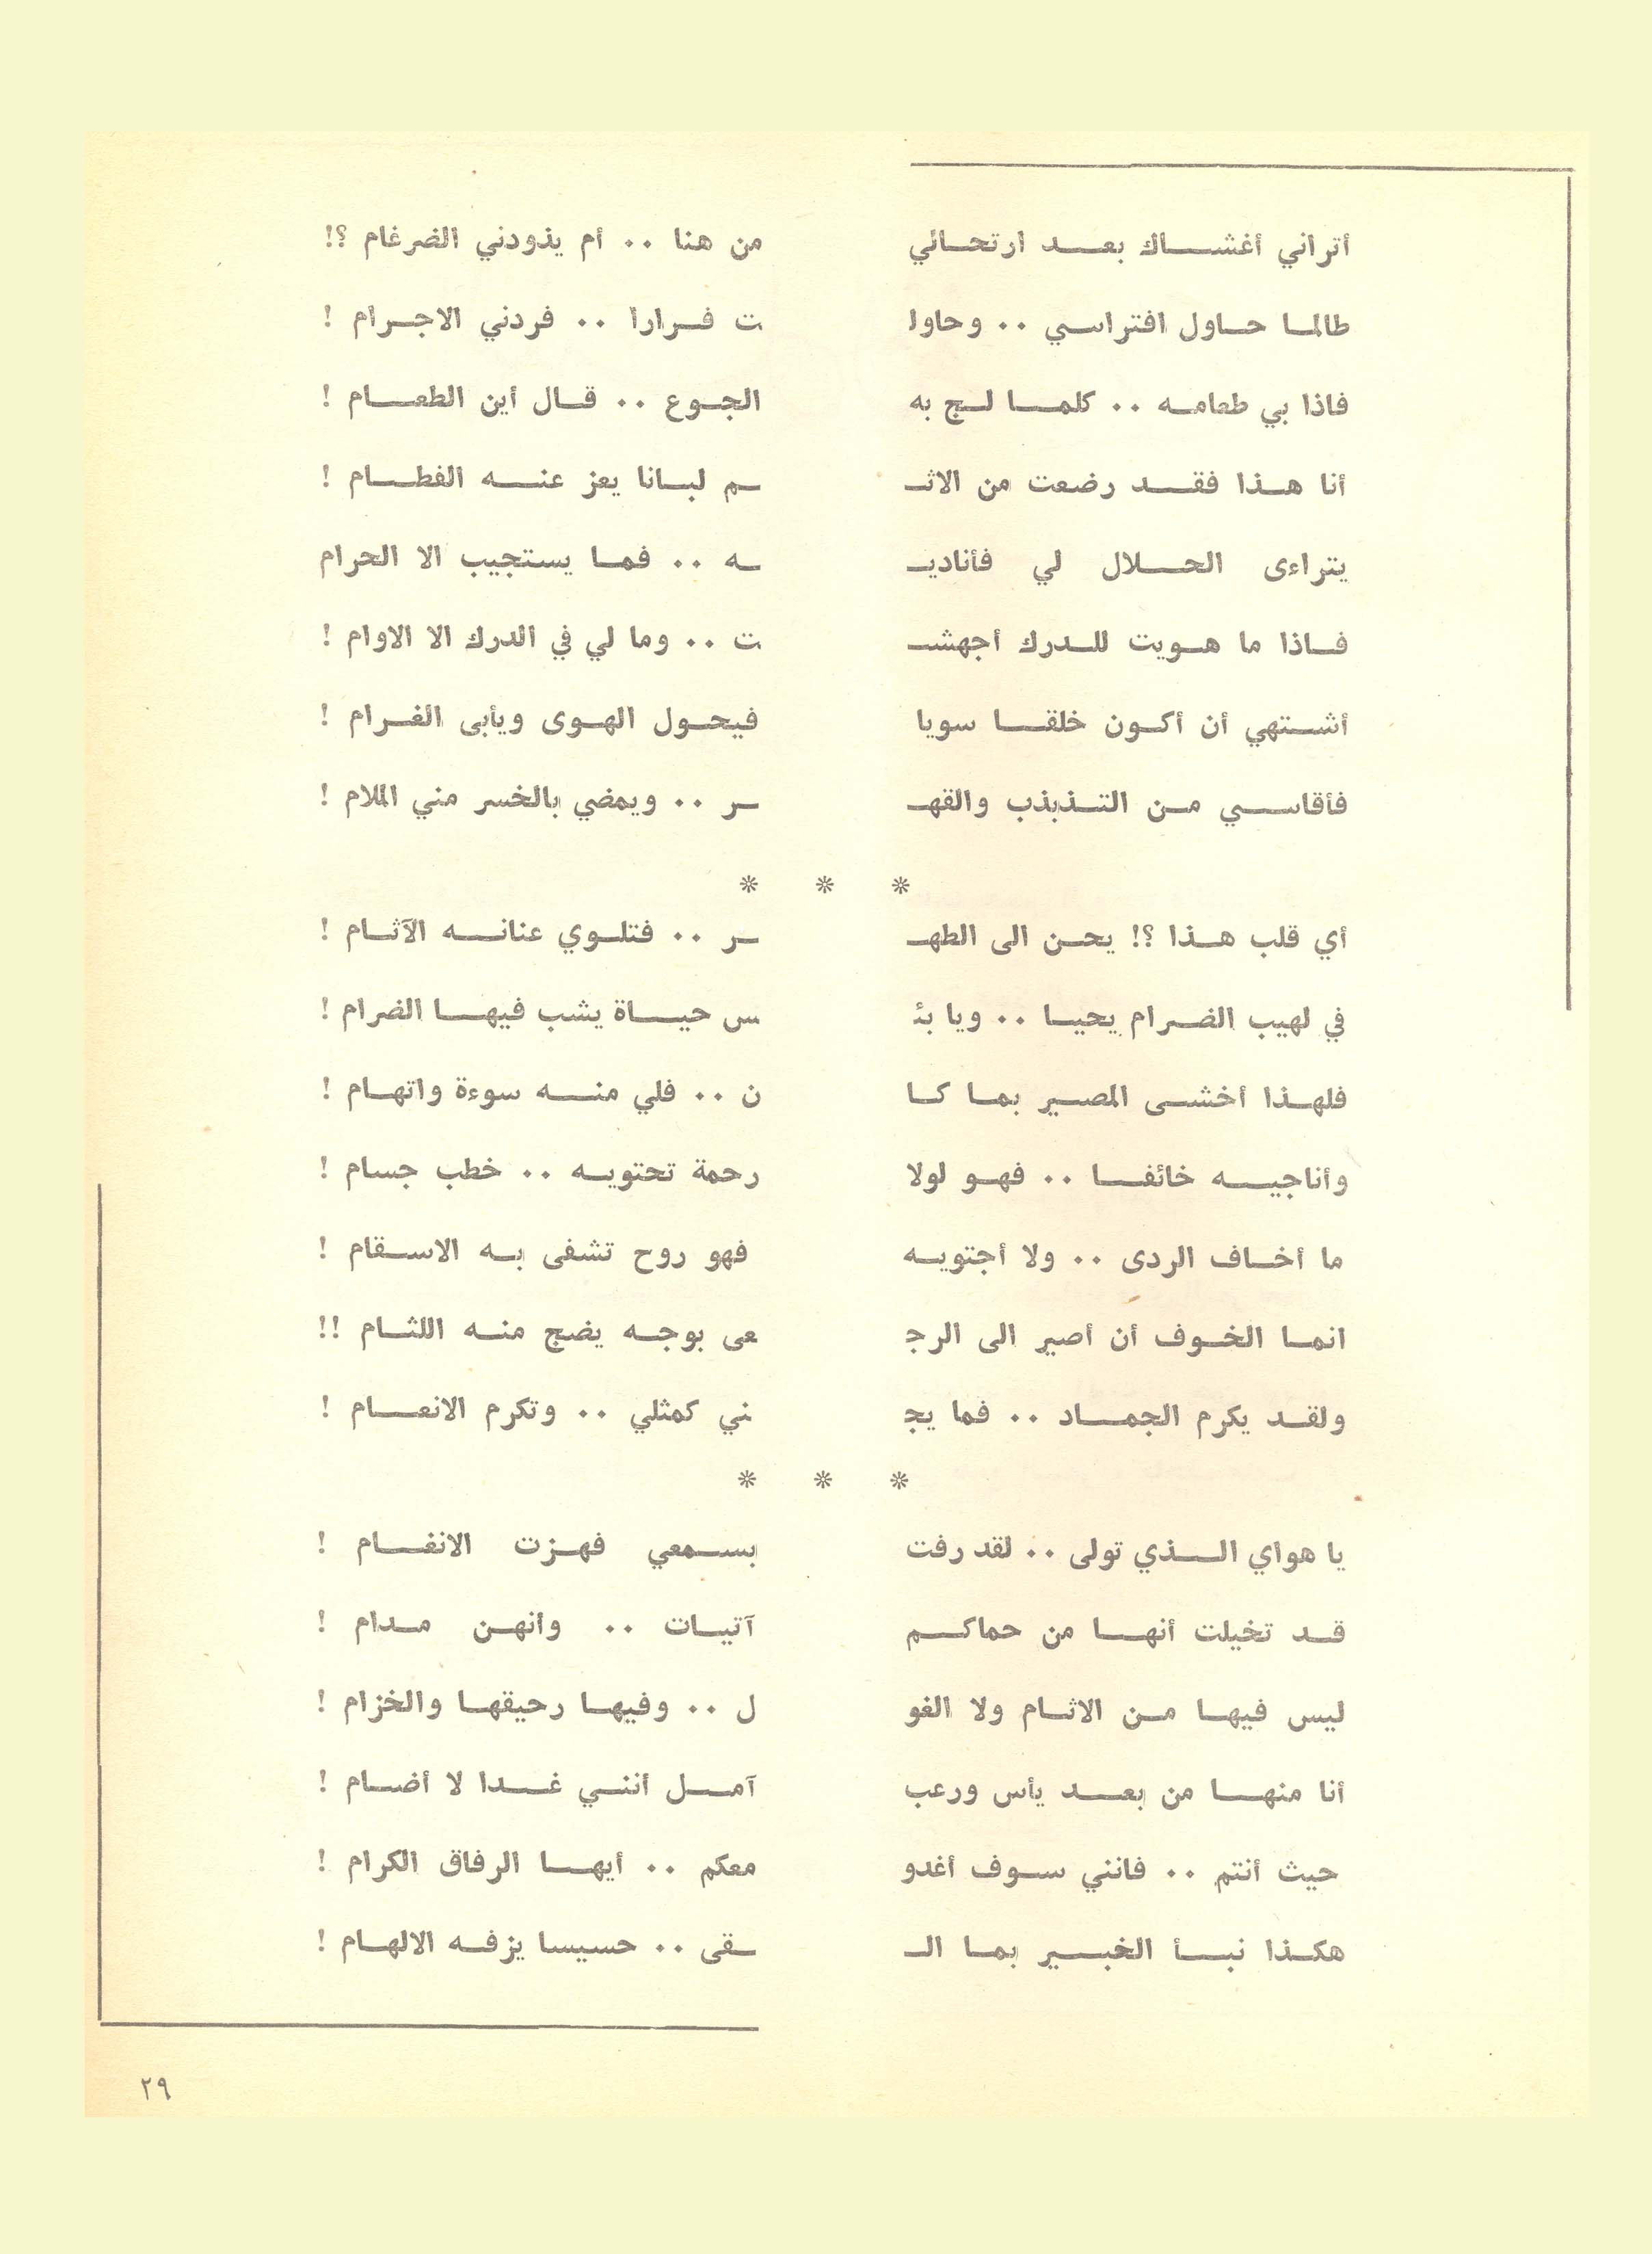 أتراني أغشاك بعد ارتحالي من هنا .. أم يذودني الضرغام ؟!
طالما حاول افتراسي .. وحاولـ ت فرارا .. فردني الاجرام !
فاذا بي طعامه .. كلما لج به الجوع .. قال أين الطعام !
أنا هذا فقد رضعت من الاثـ ـم لبانا يعز عنه الفطام !
يتراءى الحلال لي فأناديـ ـه .. فما يستجيب الا الحرام
فاذا ما هويت للدرك أجهشـ ت .. وما لي في الدرك الا الاوام !
أشتهي أن أكون خلقا سويا فيحول الهوى ويأبى الغرام !
فأقاسي من التذبذب والقهـ ـر .. ويمضي بالخسر مني الملام !
* * *
أي قلب هذا ؟! يحن الى الطهـ ـر .. فتلوي عنانه الآثام !
في لهيب الضرام يحيا .. ويا بئـ س حياة يشب فيها الضرام !
فلهذا أخشى المصير بما كا ن .. فلي منه سوءة واتهام !
وأناجيه خائفا .. فهو لولا رحمة تحتويه .. خطب جسام !
ما أخاف الردى .. ولا أجتويه فهو روح تشفى به الاسقام !
انما الخوف أن أصير الى الرجـ عى بوجه يضج منه اللثام !!
ولقد يكرم الجماد .. فما يجـ ني كمثلي .. وتكرم الانعام !
* * *
يا هواي الذي تولى .. لقد رفت بسمعي فهزت الانغام !
قد تخيلت أنها من حماكم آتيات .. وانهن مدام !
ليس فيها من الاثام ولا الغو ل .. وفيها رحيقها والخزام !
أنا منها من بعد يأس ورعب آمل أنني غدا لا أضام !
حيث أنتم .. فانني سوف أغدو معكم .. أيها الرفاق الكرام !
هكذا نبأ الخبير بما الـ ـقى .. حسيسا يزفه الالهام !
٢٩